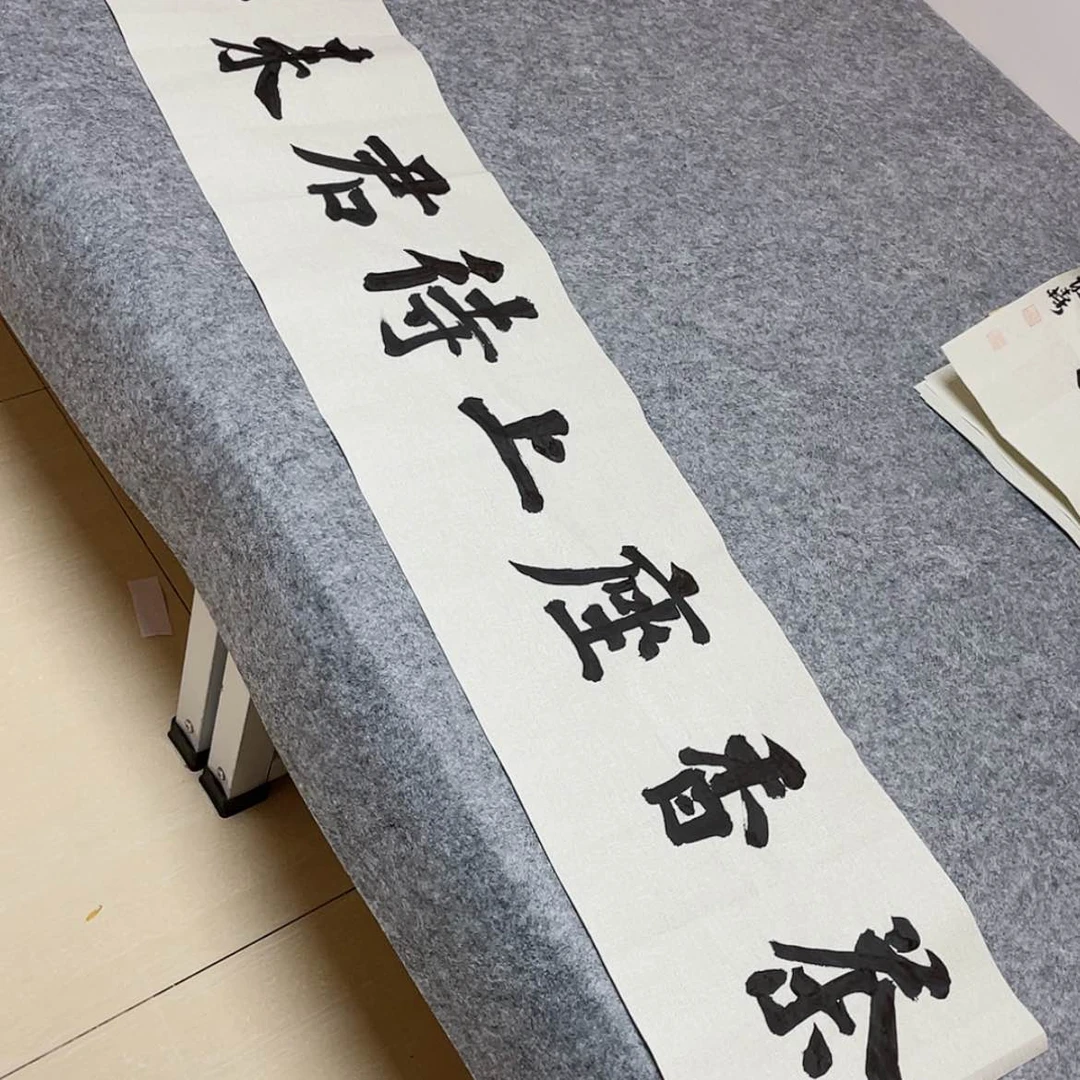 茶香座上待君来